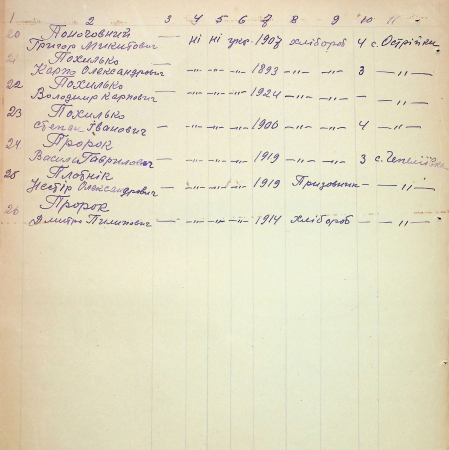 1 2 3 4 5 6 7 8 9 10 11
20 Поночовний
Григор Микитович — ні ні укр. 1907 хлібороб 4 с. Острійки
21 Похилько
Карпо Олександрович — -"- -"- -"- 1893 —"— -"- 3 — " —
22 Похилько
Володимир Карпович — -"- -"- -"- 1924 —"— -"- — — " —
23 Похилько
Степан Іванович — -"- -"- -"- 1906 —"— -"- 4 — " —
24 Пророк
Василь Гаврилович — -"- -"- -"- 1919 —"— -"- 3 с.
25 Плотнік
Нестір Олександрович — -"- -"- -"- 1919 Призовник — — " —
26 Пророк
Дмитро Пилипович — -"- -"- -"- 1914 хлібороб — — " —